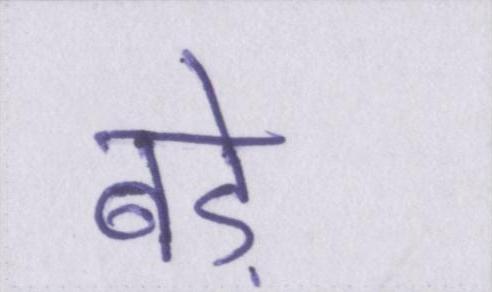 बड़े